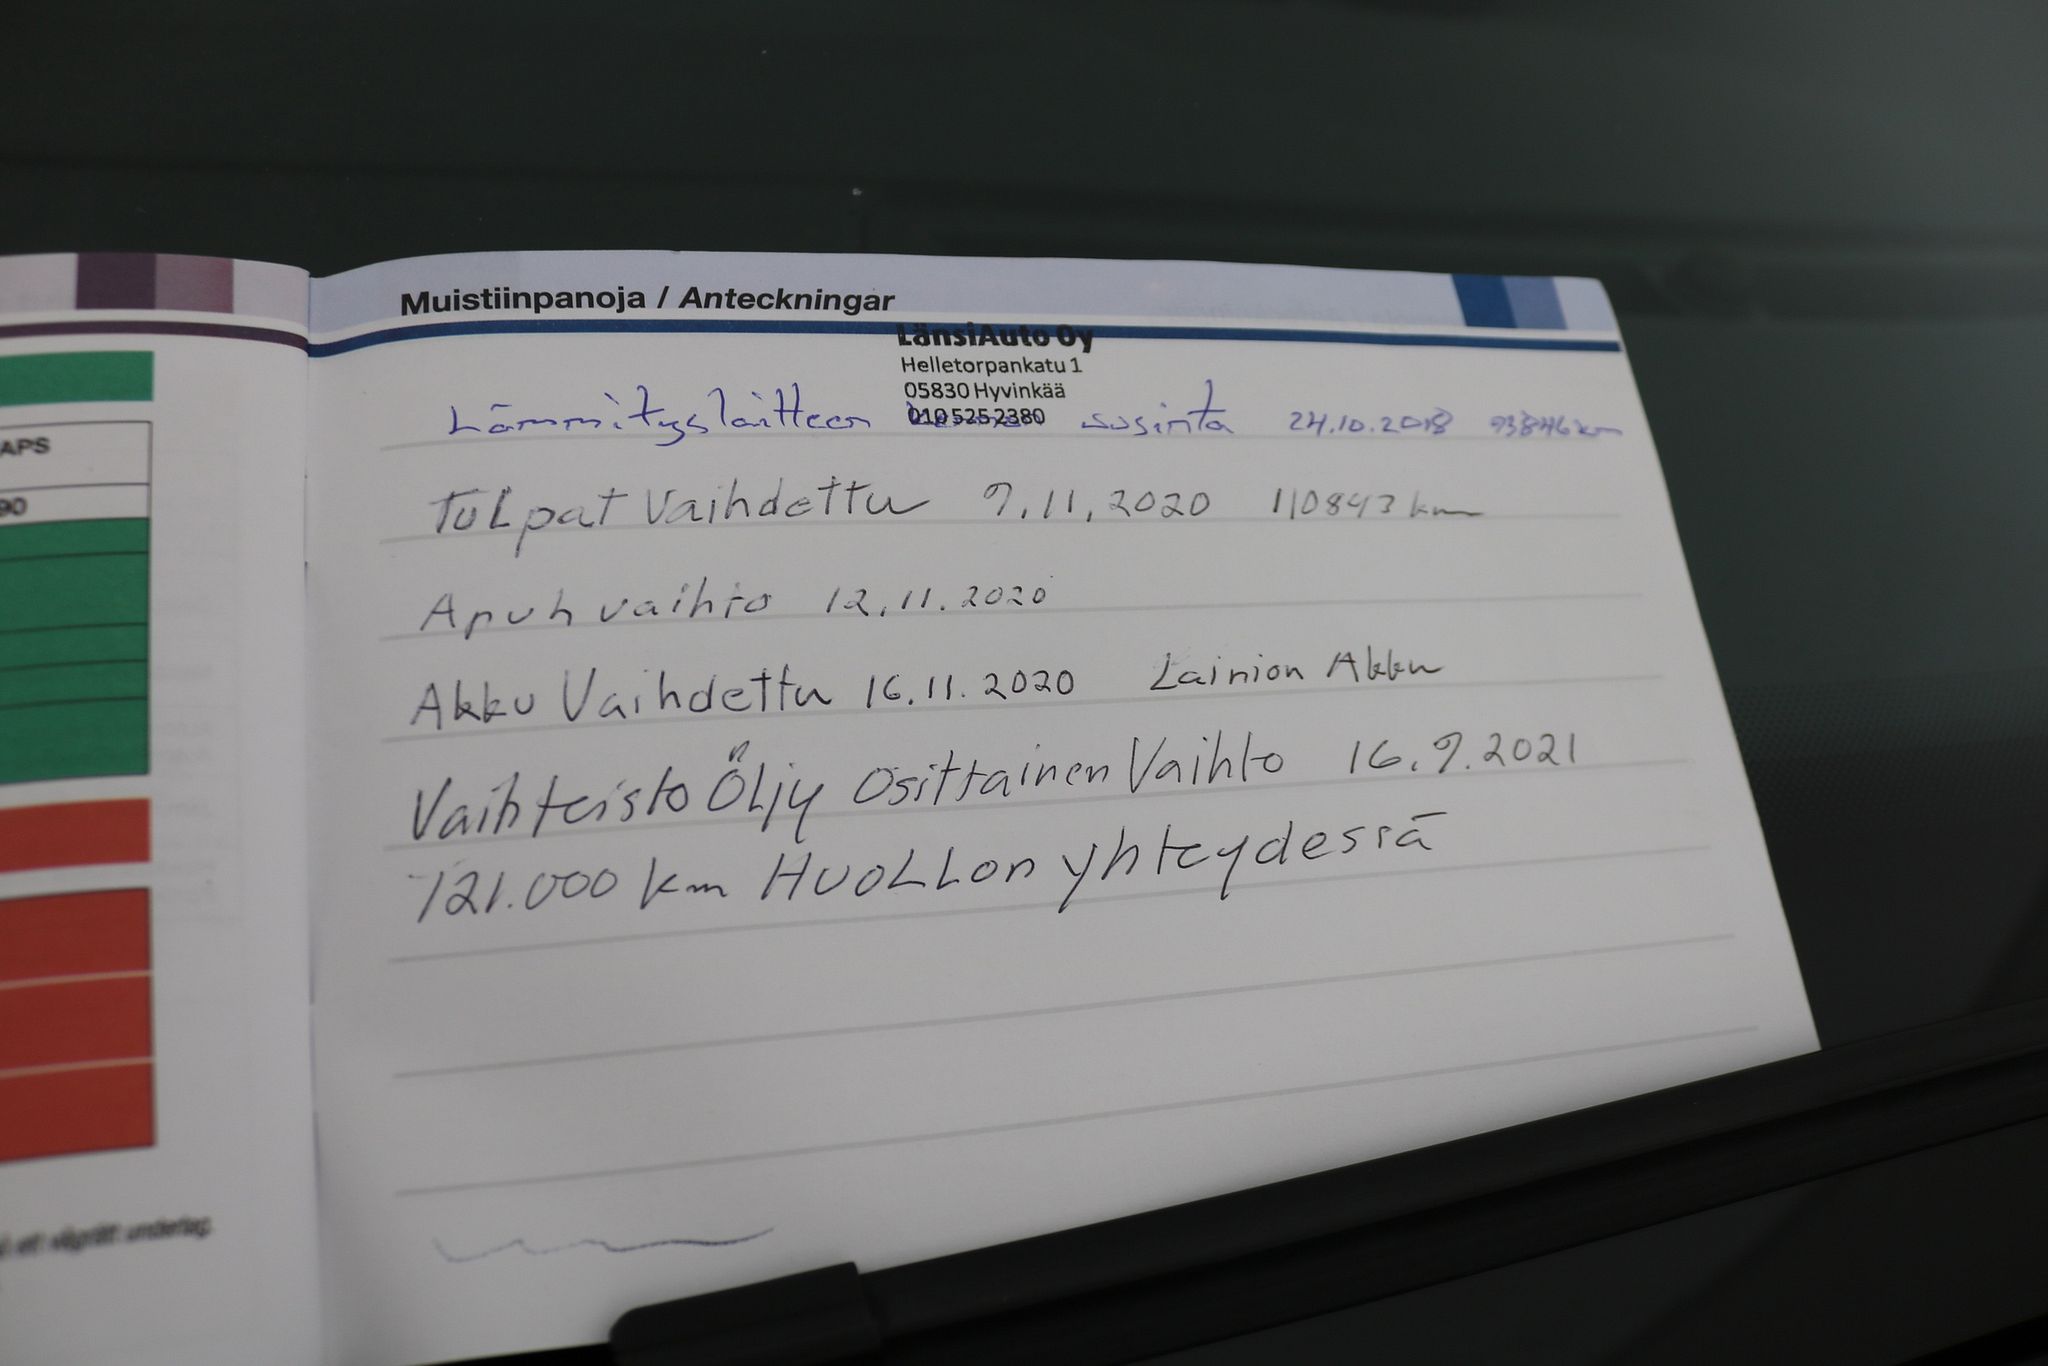 APS
90
et vågrätt underlag.
Muistiinpanoja / Anteckningar
LänsiAuto Oy
Helletorpankatu 1
05830 Hyvinkää
010 525 2380
Lämmityslaitteen uusinta 24.10.2018 93846 km
Tulpat Vaihdettu 9.11.2020 110843 km
Apuh vaihto 12.11.2020
Akku Vaihdettu 16.11.2020 Lainion Akku
Vaihteisto Öljy Osittainen Vaihto 16.9.2021
121.000 km Huollon yhteydessä